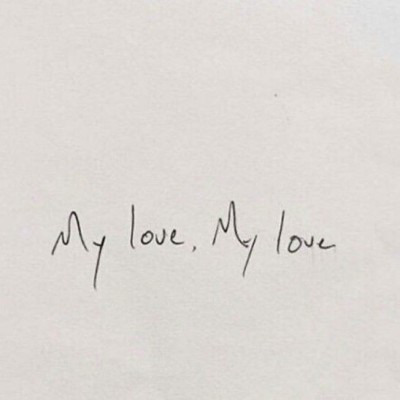 My love, My love